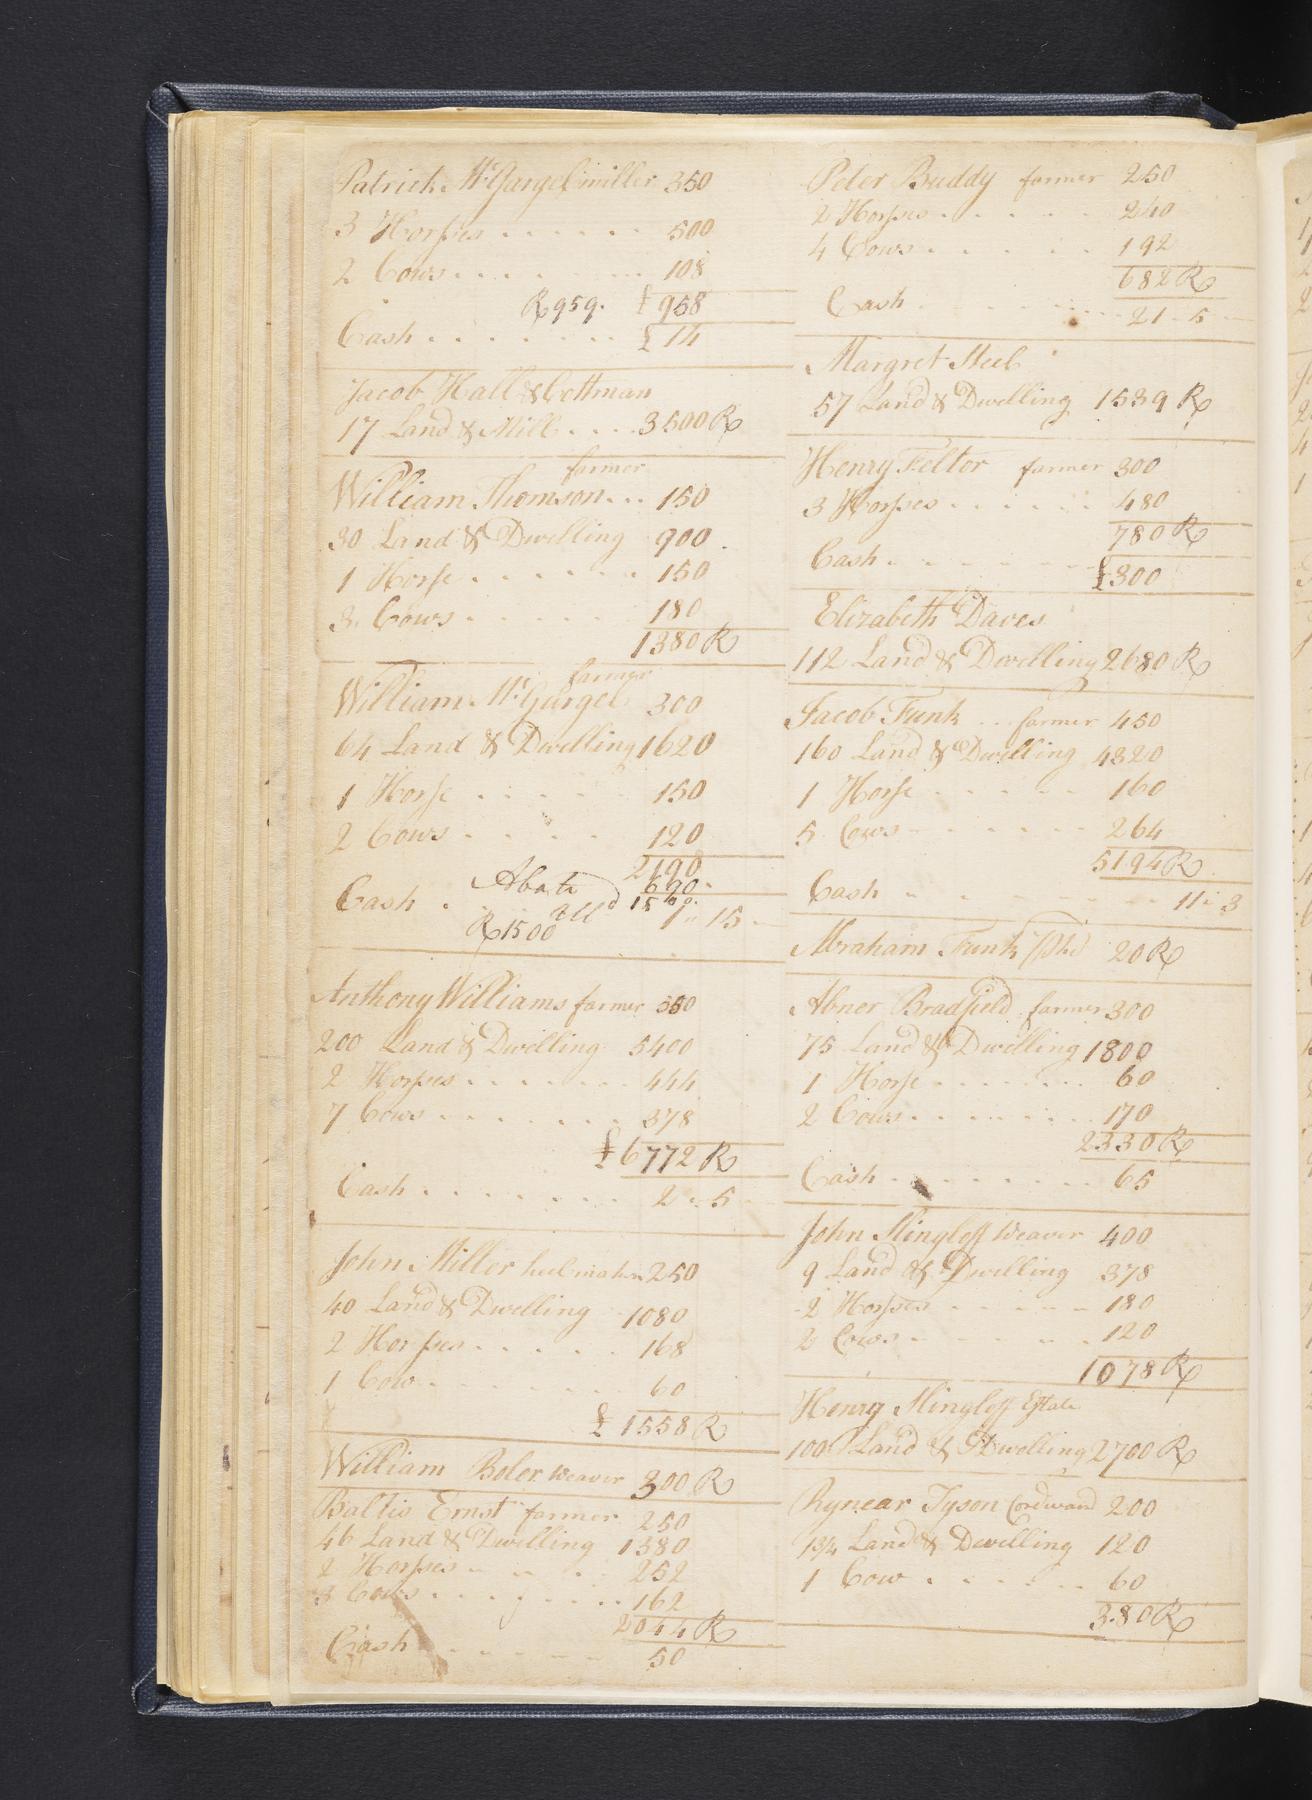 Patrick McGargel miller 350
3 Horses . . . . . . 500
2 Cows . . . . . . . 108
R 959. £ 958
Cash . . . . . . . . £ 14
Jacob Hall & Cottman
17 Land & Mill . . . . 3500 R
farmer
William Thomson . . . 150
30 Land & Dwelling 900
1 Horse . . . . . . 150
3 Cows . . . . . 180
1380 R
farmer
William McGargel 300
64 Land & Dwelling 1620
1 Horse . . . . . 150
2 Cows . . . . 120
2190
Abate 690
Cash . 15 00
R 1500 1 " 15
Anthony Williams farmer 550
200 Land & Dwelling 5400
2 Horses . . . . . . . 444
7 Cows . . . . . . . 378
£ 6772 R
Cash . . . . . . . . 2 " 5
John Miller 250
40 Land & Dwelling 1080
2 Horses . . . . . 168
1 Cow . . . . . . . 60
£ 1558 R
William Boler Weaver 300 R
Baltis Ernst farmer 250
46 Land & Dwelling 1380
2 Horses . . . . . 252
3 Cows . . . . . . . 162
2044 R
Cash . . . . . . 50
Peter Buddy farmer 250
2 Horses . . . . . 240
4 Cows . . . . . . 192
682 R
Cash . . . . . . . 21 - 5
Margret Steel
57 Land & Dwelling 1539 R
Henry Feltor farmer 300
3 Horses . . . . . . 480
780 R
Cash . . . . . . . £ 300
Elizabeth Daves
112 Land & Dwelling 2680 R
Jacob Funk . . . farmer 450
160 Land & Dwelling 4320
1 Horse . . . . . 160
5 Cows . . . . . . 264
5194 R
Cash . . . . . . . 11 " 3
Abraham Funk 20 R
Abner Bradfield farmer 300
75 Land & Dwelling 1800
1 Horse . . . . . . . 60
2 Cows . . . . . . . 170
2330 R
Cash . . . . . . . . 65
John Slingloff Weaver 400
9 Land & Dwelling 378
2 Horses . . . . . 180
2 Cows . . . . . . 120
1078 R
Henry Slingloff Estate
100 Land & Dwelling 2700 R
Rynear Tyson Cordwand 200
13/4 Land & Dwelling 120
1 Cow . . . . . . 60
380 R